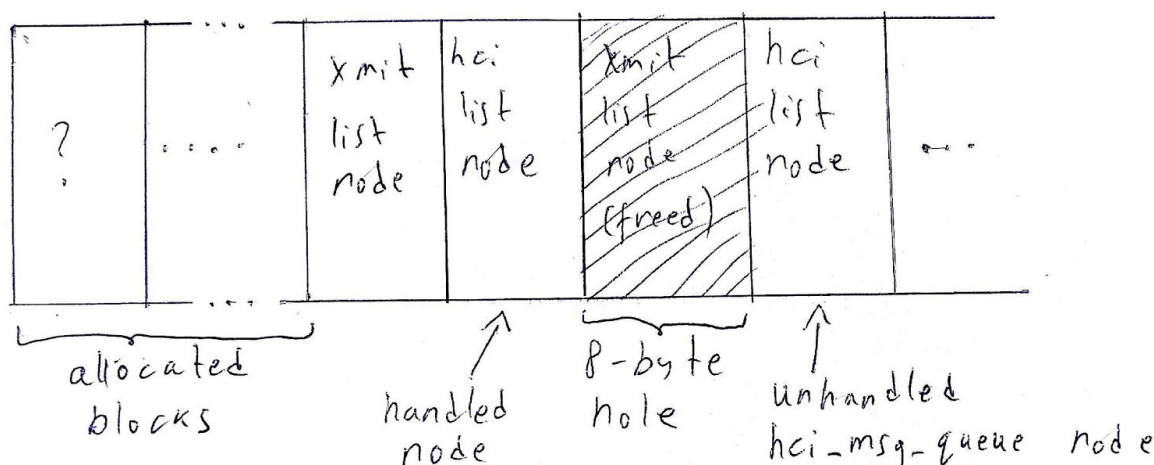 ....
?
....
xmit
list
node
hci
list
node
xmit
list
node
(freed)
hci
list
node
....
....
allocated
blocks
handled
node
8-byte
hole
unhandled
hci_msg_queue node